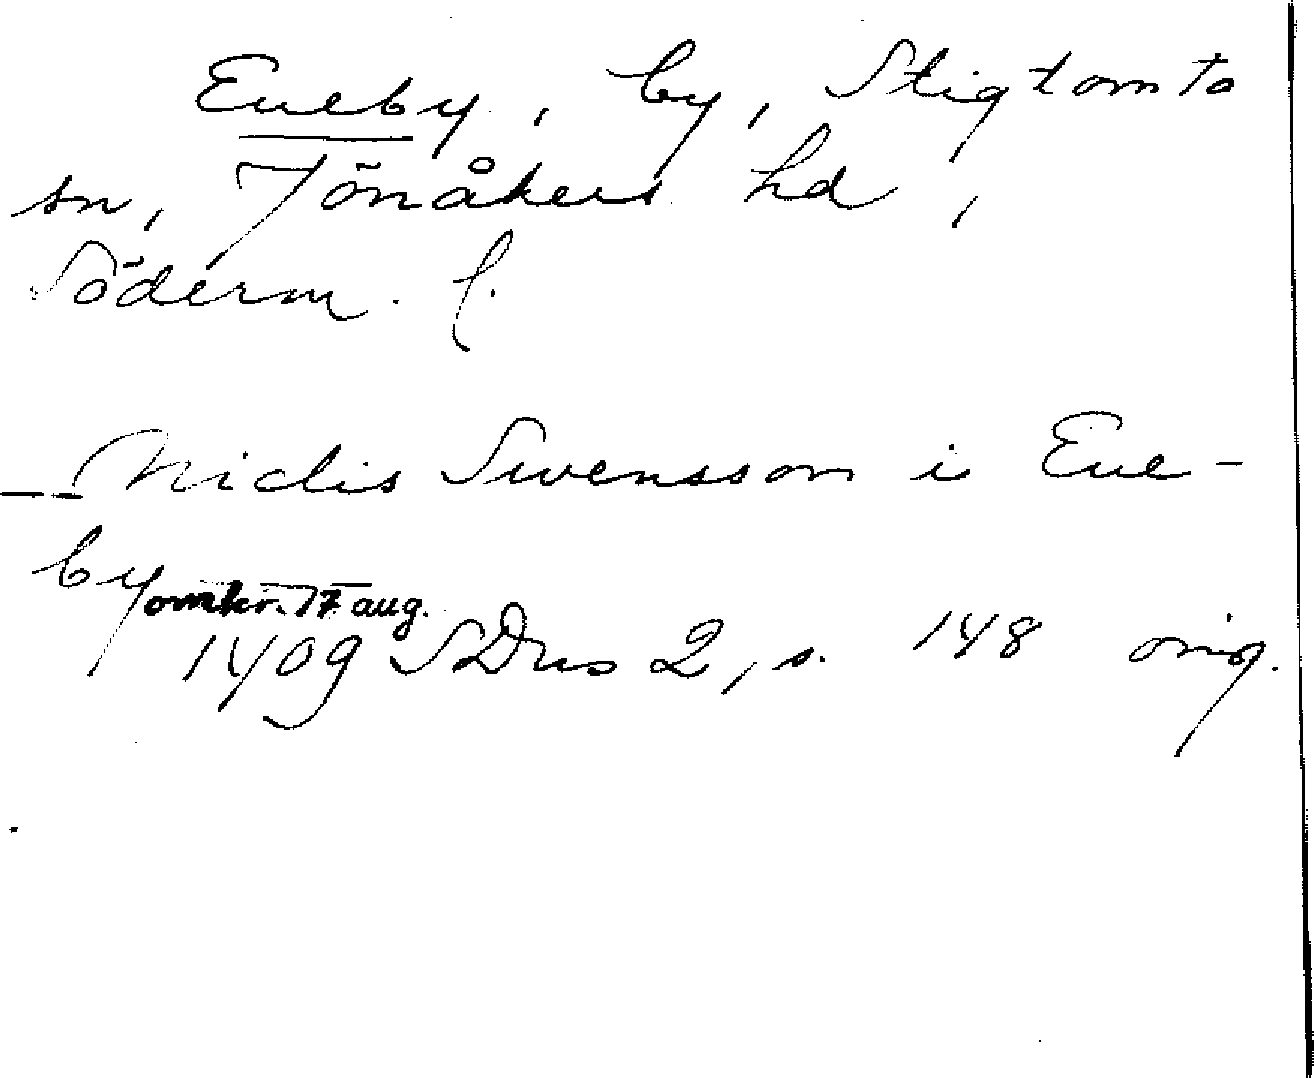 Eneby, by, Stigtomta
sn, Jönåkers hd,
Söderm. l.
-- Niclis Swensson i Ene-
by
omkr. 17 aug.
1409 SDns 2, s. 148 orig.